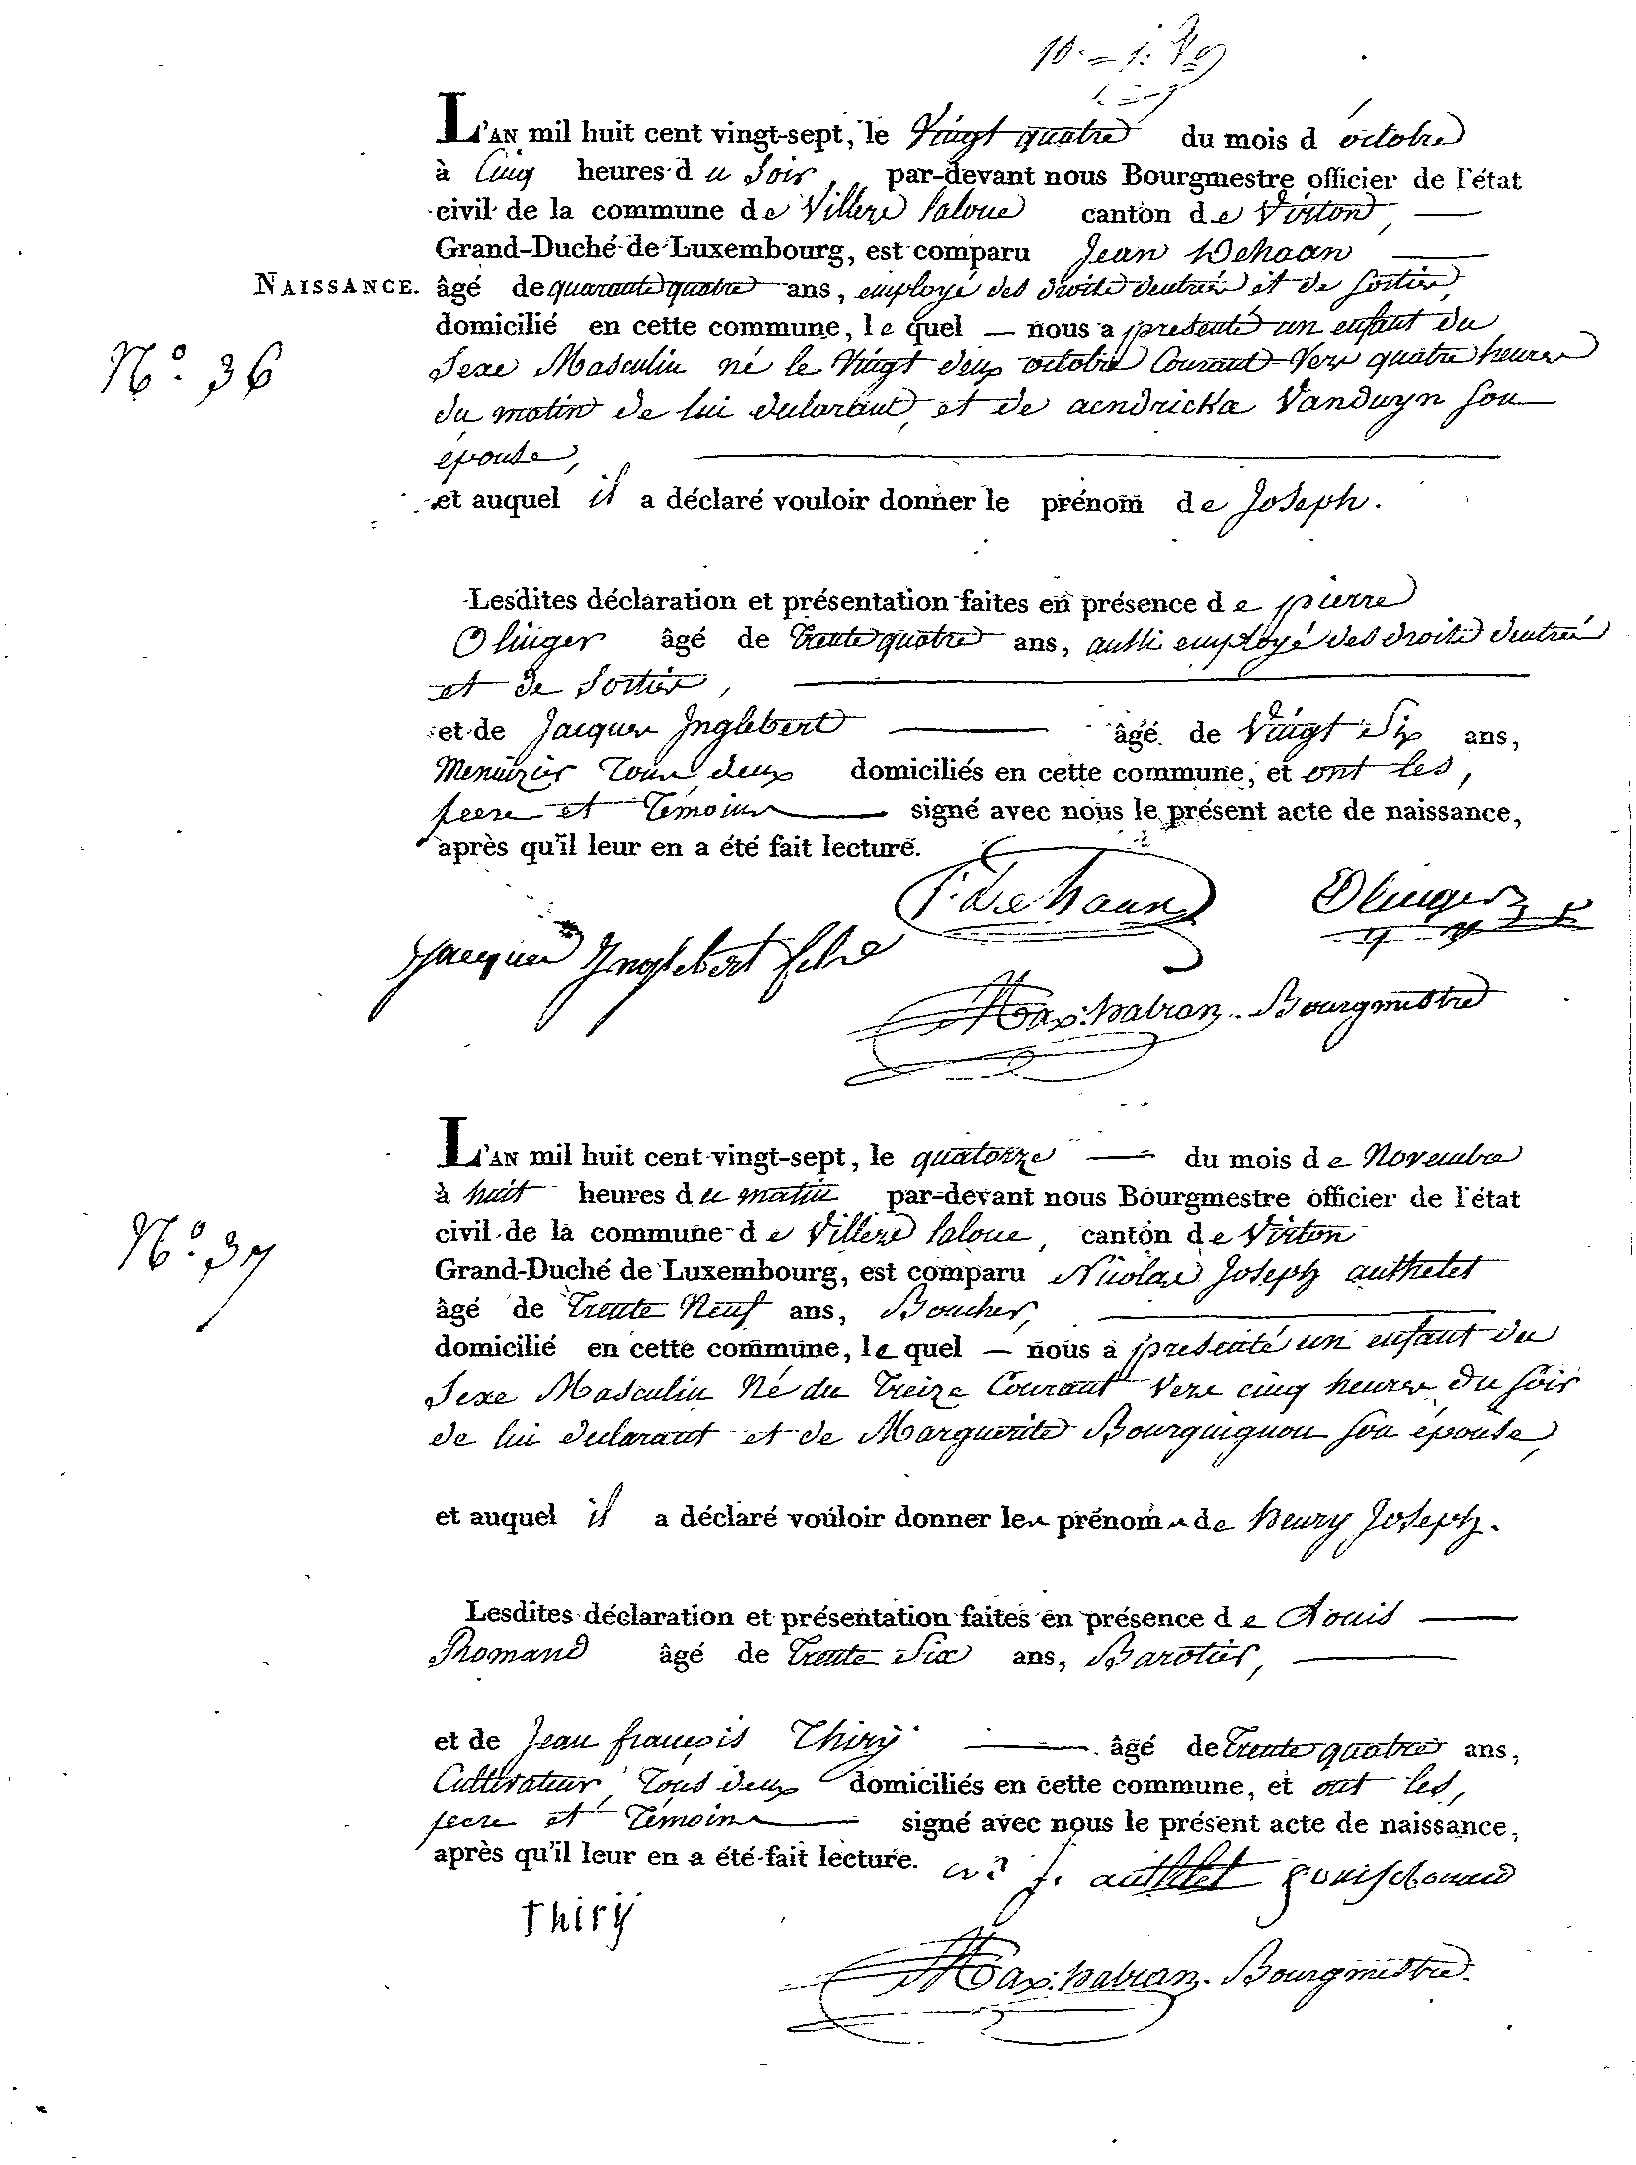 L'AN mil huit cent vingt-sept, le Vingt quatre du mois d'octobre
à Cinq heures du Soir, par-devant nous Bourgmestre officier de l'état
civil de la commune de Villers la loue canton de Virton,
Grand-Duché de Luxembourg, est comparu Jean Dehaan
NAISSANCE. âgé de quarante quatre ans, employé des droits d'entrée et de Sortie,
domicilié en cette commune, lequel nous a presenté un enfant du
N.º 36 Sexe Masculin né le Vingt deux octobre Courant Vers quatre heures
du matin de lui declarant, et de aendricka Vanduyn Son
épouse,
et auquel il a déclaré vouloir donner le prénom de Joseph.
Lesdites déclaration et présentation faites en présence de pierre
Olinger âgé de Trente quatre ans, aussi employé des droits d'entrée
et de Sortie,
et de Jacques Inglebert âgé de Vingt Six ans,
Menuizier Tous deux domiciliés en cette commune, et ont les,
peere et Témoins signé avec nous le présent acte de naissance,
après qu'il leur en a été fait lecture.
J. de haan Olinger
Jacques Inglebert fils
Max. habran. Bourgmestre
L'AN mil huit cent vingt-sept, le quatorze du mois de Novembre
à huit heures du matin par-devant nous Bourgmestre officier de l'état
N.º 37 civil de la commune de Villers la loue, canton de Virton
Grand-Duché de Luxembourg, est comparu Nicolas Joseph authelet
âgé de Trente Neuf ans, Boucher,
domicilié en cette commune, lequel nous a presenté un enfant du
Sexe Masculin Né du Treize Courant Vers cinq heures du Soir
de lui declarant et de Marguerite Bourguignon Son épouse,
et auquel il a déclaré vouloir donner les prénoms de henry Joseph.
Lesdites déclaration et présentation faites en présence de Louis
Romand âgé de Trente Six ans, Barotier,
et de Jean françois Thirÿ âgé de Trente quatre ans,
Cultivateur, Tous deux domiciliés en cette commune, et ont les,
peere et Témoins signé avec nous le présent acte de naissance,
après qu'il leur en a été fait lecture.
J. authelet
Thirÿ
Max. habran. Bourgmestre.